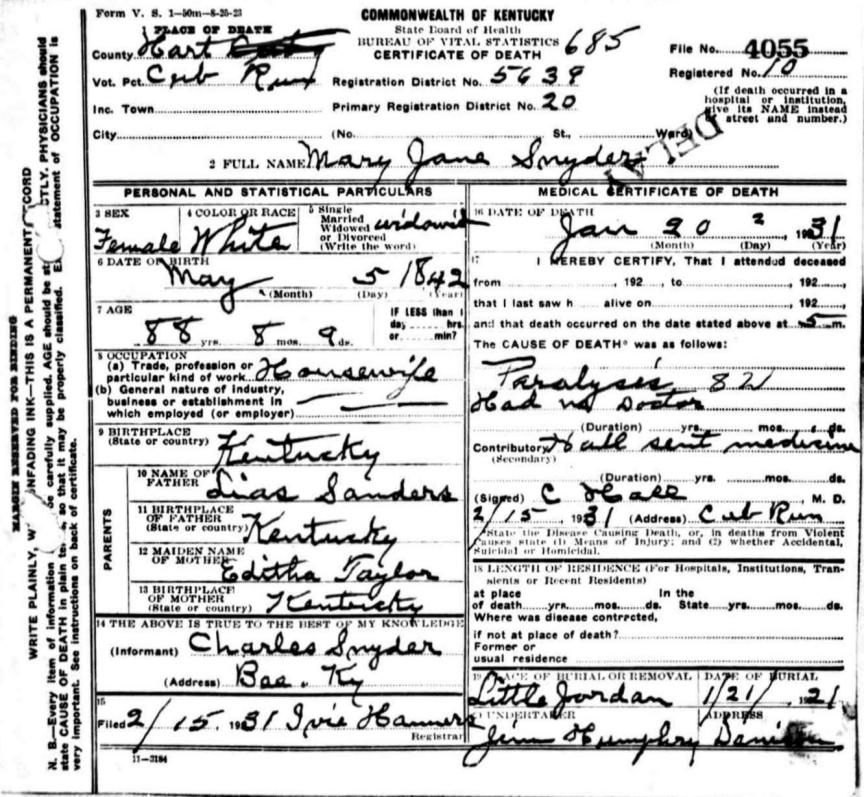 Form V. S. 1—50m—8-25-23
COMMONWEALTH OF KENTUCKY
State Board of Health
BUREAU OF VITAL STATISTICS
CERTIFICATE OF DEATH
685
File No. 4055
Registered No. 10
(If death occurred in a hospital or institution, give its NAME instead of street and number.)
1 PLACE OF DEATH
County Hart
Vot. Pct. Cub Run
Registration District No. 5639
Inc. Town
Primary Registration District No. 20
City (No. St., Ward)
DELAY
2 FULL NAME Mary Jane Snyder
PERSONAL AND STATISTICAL PARTICULARS
3 SEX Female
4 COLOR OR RACE White
5 Single Married Widowed or Divorced (Write the word) widowed
6 DATE OF BIRTH May 5 1842
(Month) (Day) (Year)
7 AGE 88 yrs. 8 mos. 9 ds.
IF LESS than 1 day hrs. or min?
8 OCCUPATION
(a) Trade, profession or particular kind of work Housewife
(b) General nature of industry, business or establishment in which employed (or employer)
9 BIRTHPLACE (State or country) Kentucky
PARENTS
10 NAME OF FATHER Lias Sanders
11 BIRTHPLACE OF FATHER (State or country) Kentucky
12 MAIDEN NAME OF MOTHER Editha Taylor
13 BIRTHPLACE OF MOTHER (State or country) Kentucky
14 THE ABOVE IS TRUE TO THE BEST OF MY KNOWLEDGE
(Informant) Charles Snyder
(Address) Bee. Ky
15
Filed 2/15. 1931 Ivie Hanners
Registrar
11-3184
MEDICAL CERTIFICATE OF DEATH
16 DATE OF DEATH Jan 20 2, 1931
(Month) (Day) (Year)
17 I HEREBY CERTIFY, That I attended deceased
from , 192 , to , 192
that I last saw h alive on , 192
and that death occurred on the date stated above at 5 m.
The CAUSE OF DEATH* was as follows:
Paralysis 82
Had no Doctor
(Duration) yrs. mos. ds.
Contributory Hall sent medicine
(Secondary)
(Duration) yrs. mos. ds.
(Signed) C Hall, M. D.
2/15, 1931 (Address) Cub Run
*State the Disease Causing Death, or, in deaths from Violent
Causes state (1) Means of Injury; and (2) whether Accidental,
Suicidal or Homicidal.
18 LENGTH OF RESIDENCE (For Hospitals, Institutions, Transients or Recent Residents)
at place of death yrs. mos. ds. In the State yrs. mos. ds.
Where was disease contracted,
if not at place of death?
Former or usual residence
19 PLACE OF BURIAL OR REMOVAL Little Jordan
DATE OF BURIAL 1/21/ 21
UNDERTAKER Jim Humphry
ADDRESS
MARGIN RESERVED FOR BINDING
WRITE PLAINLY, UNFADING INK—THIS IS A PERMANENT RECORD
N. B.—Every item of information be carefully supplied. AGE should be PHYSICIANS should
state CAUSE OF DEATH in plain so that it may be properly classified. statement of OCCUPATION is
very important. See instructions on back of certificate.